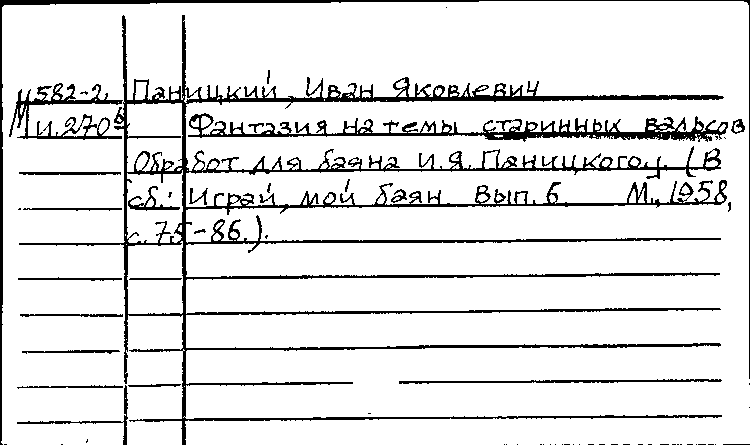 М582-2 Паницкий, Иван Яковлевич
И.270б Фантазия на темы старинных вальсов
Обработ для баяна И.Я. Паницкого. (В
сб.: Играй, мой баян. Вып. 6. М., 1958,
с. 75-86.).